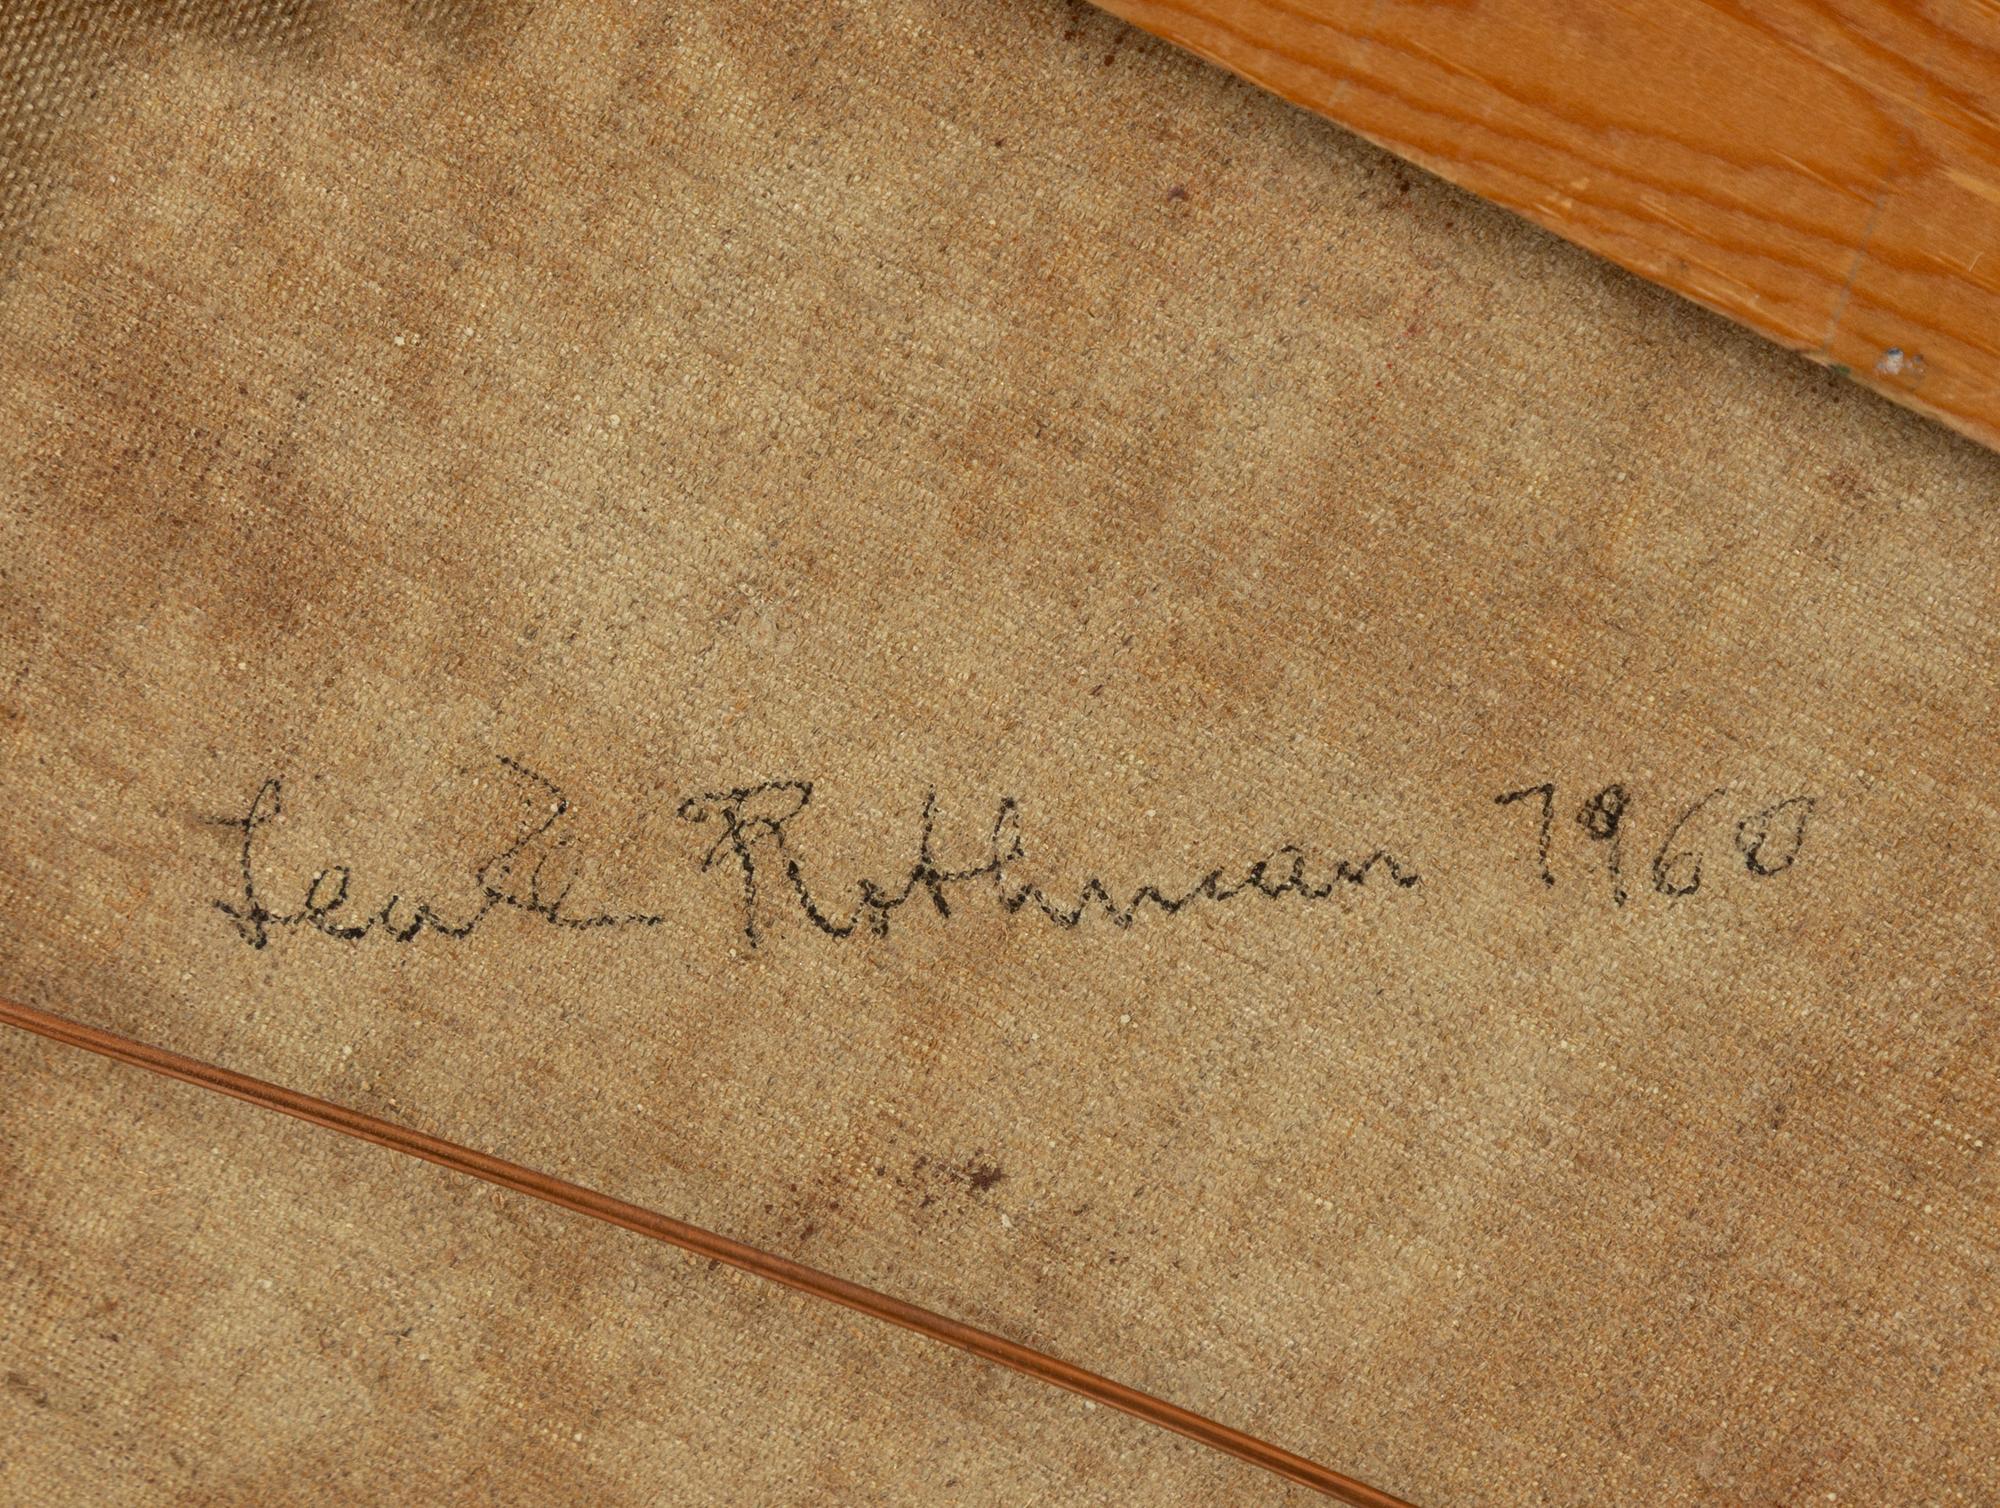 Rothman 1960